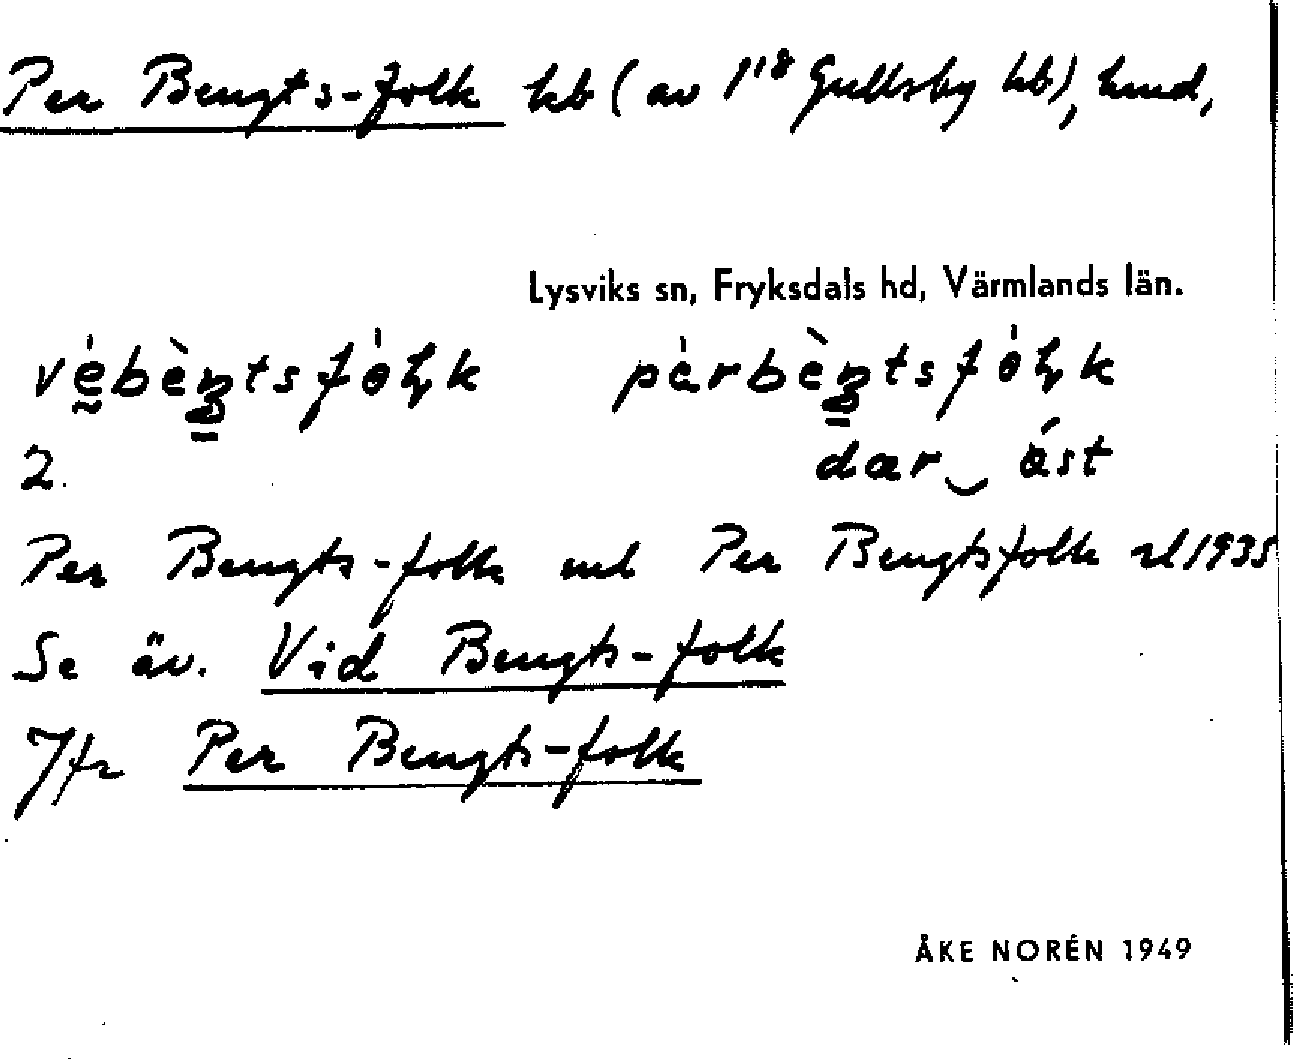 Per Bengts-folk hb (av 1¹⁸ Gullsby hb), hmd,
Lysviks sn, Fryksdals hd, Värmlands län.
vébèŋtsfól̥k pèrbèŋtsfól̥k
2. dær‿ást
Per Bengts-folk mb Per Bengtsfolk rl 1935
Se äv. Vid Bengts-folk
Jfr Per Bengts-folk
ÅKE NORÉN 1949